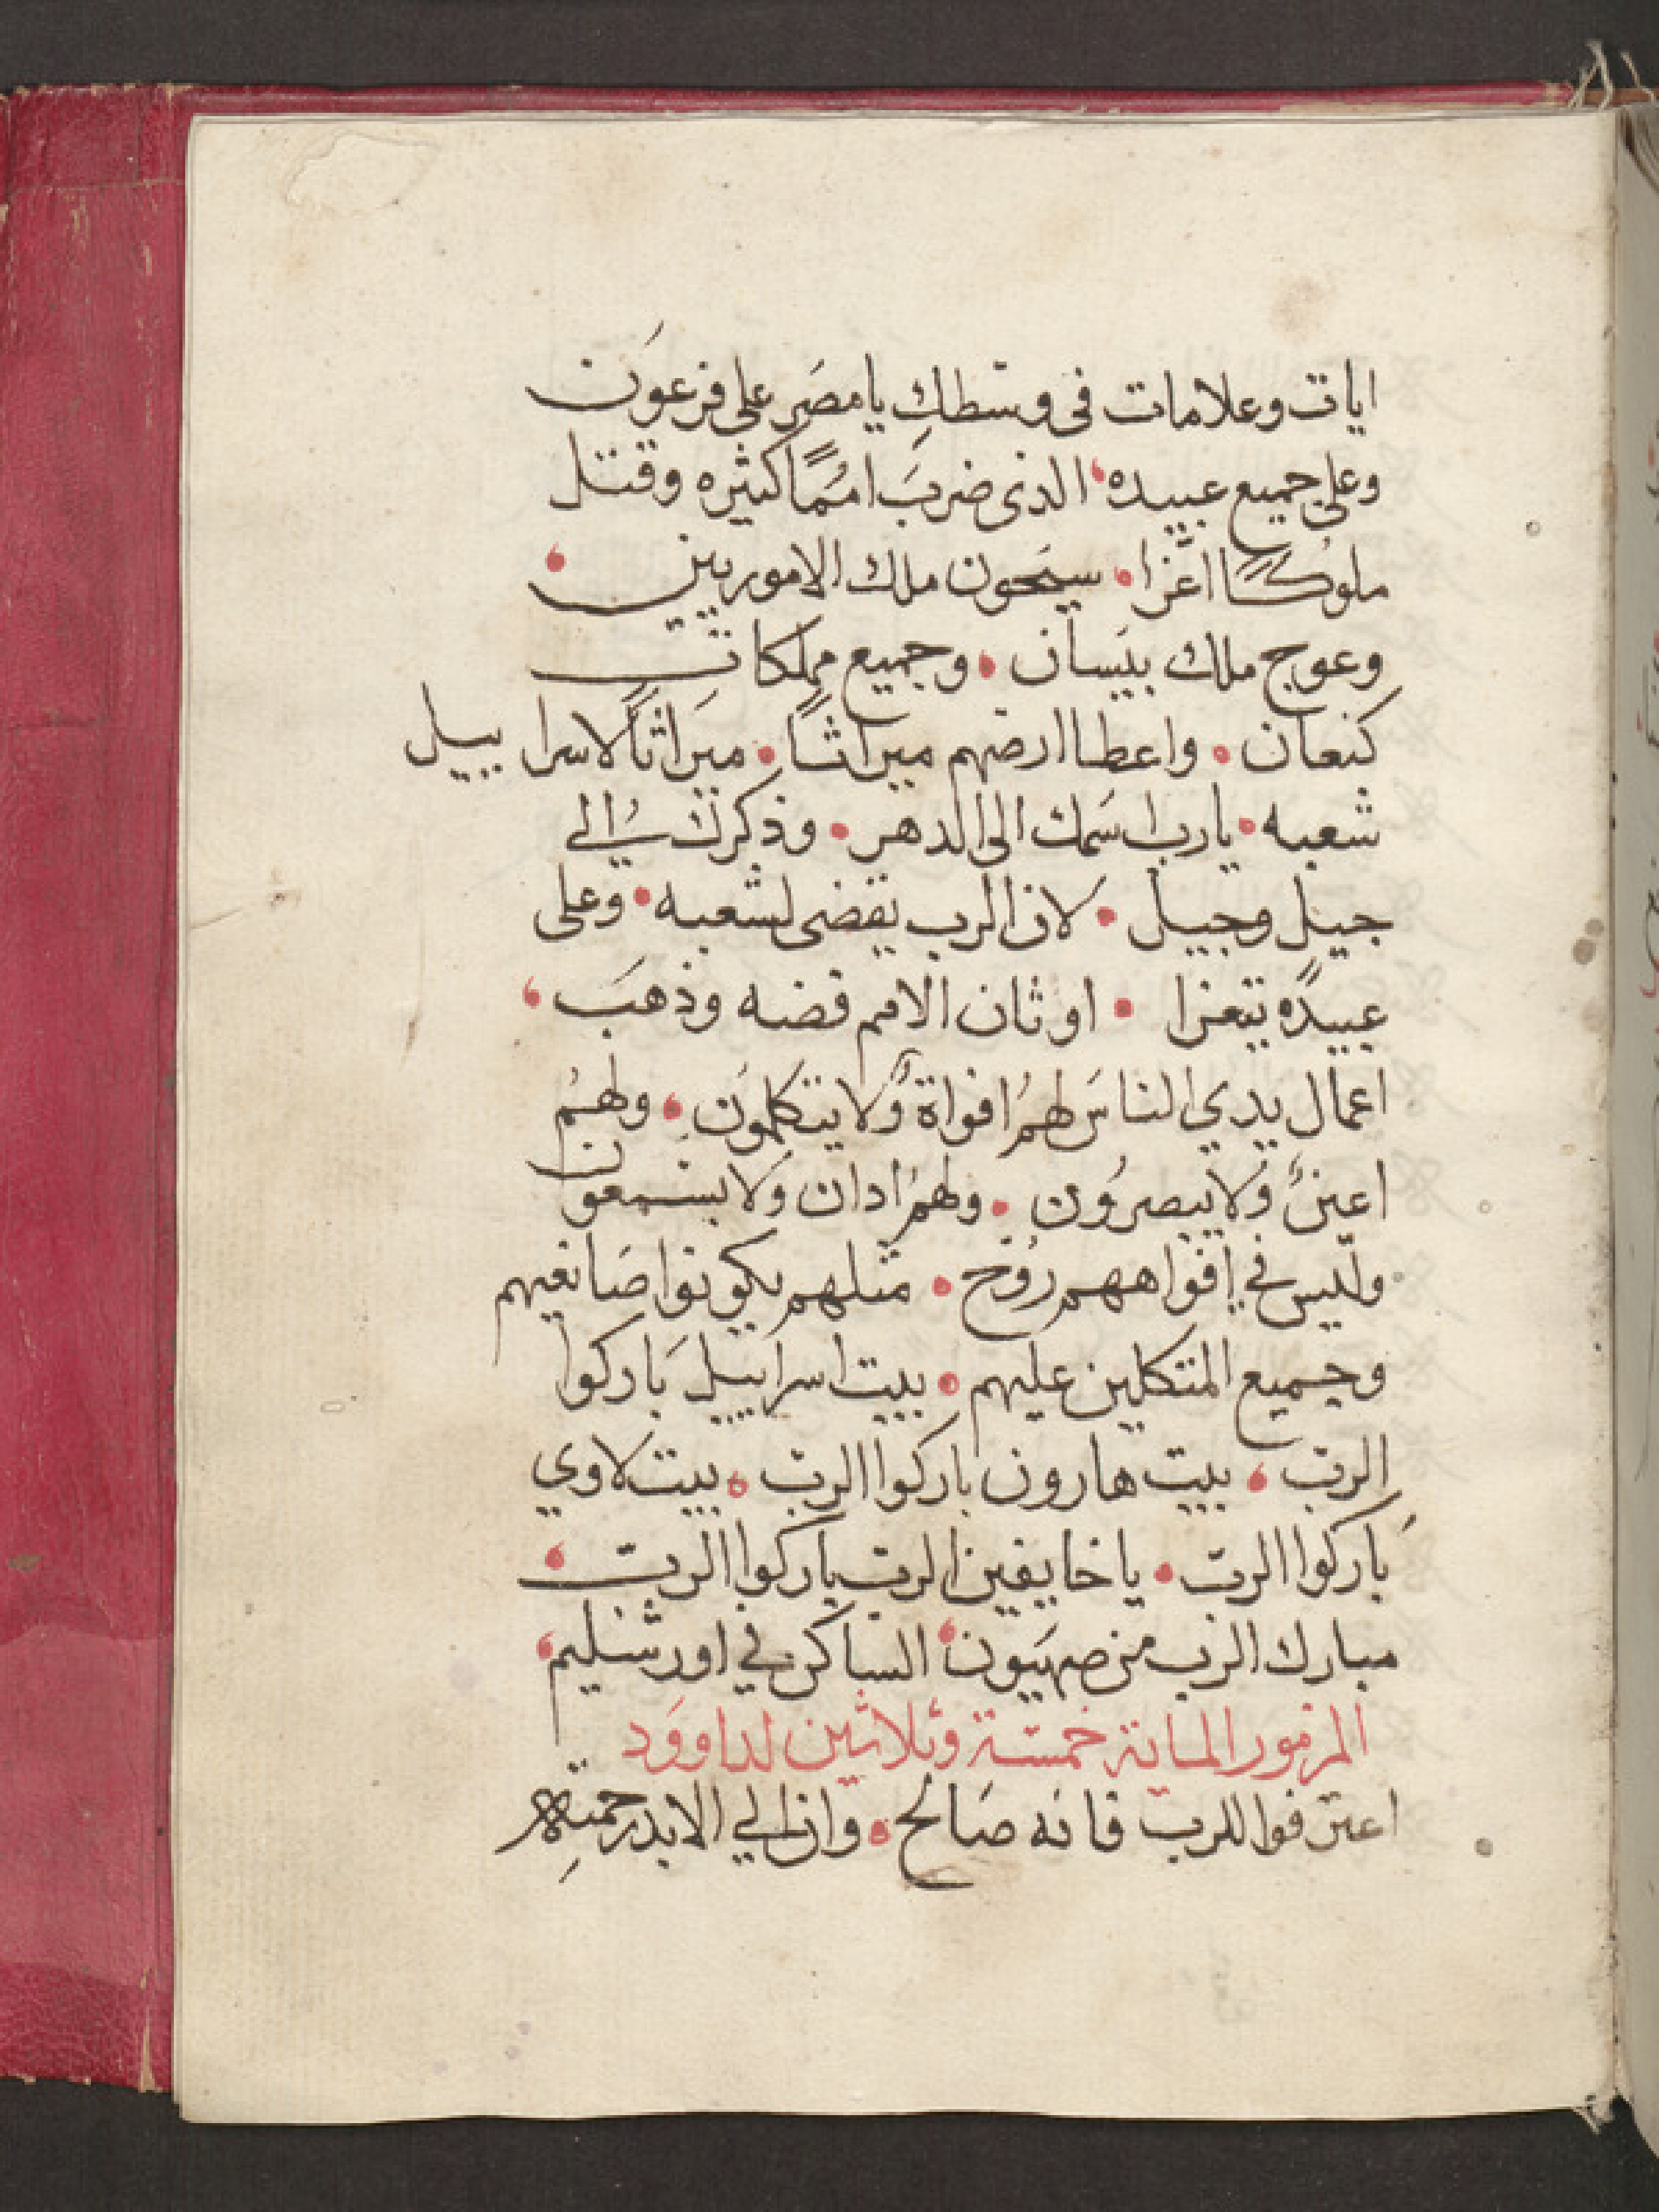 ايات وعلامات فى وسَطكِ يا مصَر على فرعوَن
وعلى جميع عبيده الذى ضربَ اممًا كثيره وقتل
ملوكًا اعزا • سيحون ملك الاموريين •
وعوج ملك بيَسان • وجميع مملكات
كنعان • واعطا ارضهم ميراثًا • ميَراثاً لاسراييل
شعبه • يارب اسَمك الى الدهر • وذكرك الي
جيل وجيل • لان الرب يقضى لشعبه • وعلى
عبيدًه يتعزا • اوثان الامم فضه وذهبَ •
اعمال يدي الناسَ لهمُ افواة ولا يتكلموَن • ولهمُ
اعين ولا يبصروُن • ولهمُ ادان ولا يسمعون
وليس في افواههم روُح • مثلهم يكونوا صَانعيهم
وجميع المتكلين عليهم • بيت اسراييل بَاركوا
الرب • بيت هارون باركوا الرب • بيت لاوي
بَاركوا الرب • يا خايفين الرب باركوا الرب •
مبارك الرب من صهيَون • الساكن في اورشليم •
المزمور الماية خمسة وثلاثين لداووَد
اعترفوا للرب فانه صَالح • وان الي الابد رحمتهِ